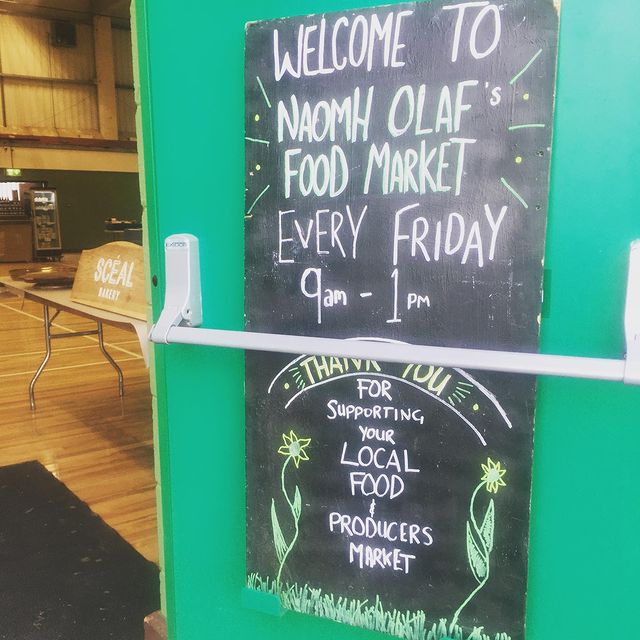 WELCOME TO
NAOMH OLAF's
FOOD MARKET
EVERY FRIDAY
9am - 1PM
THANK YOU
FOR
SUPPORTING
YOUR
LOCAL
FOOD
&
PRODUCERS
MARKET
SCÉAL
BAKERY
EXIDOR